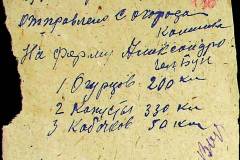 Отправлено с огорода
Камышка
На ферму Александро
1 Огурцов 200 кг
2 Капусты 330 кг
3 Кабачков 50 кг